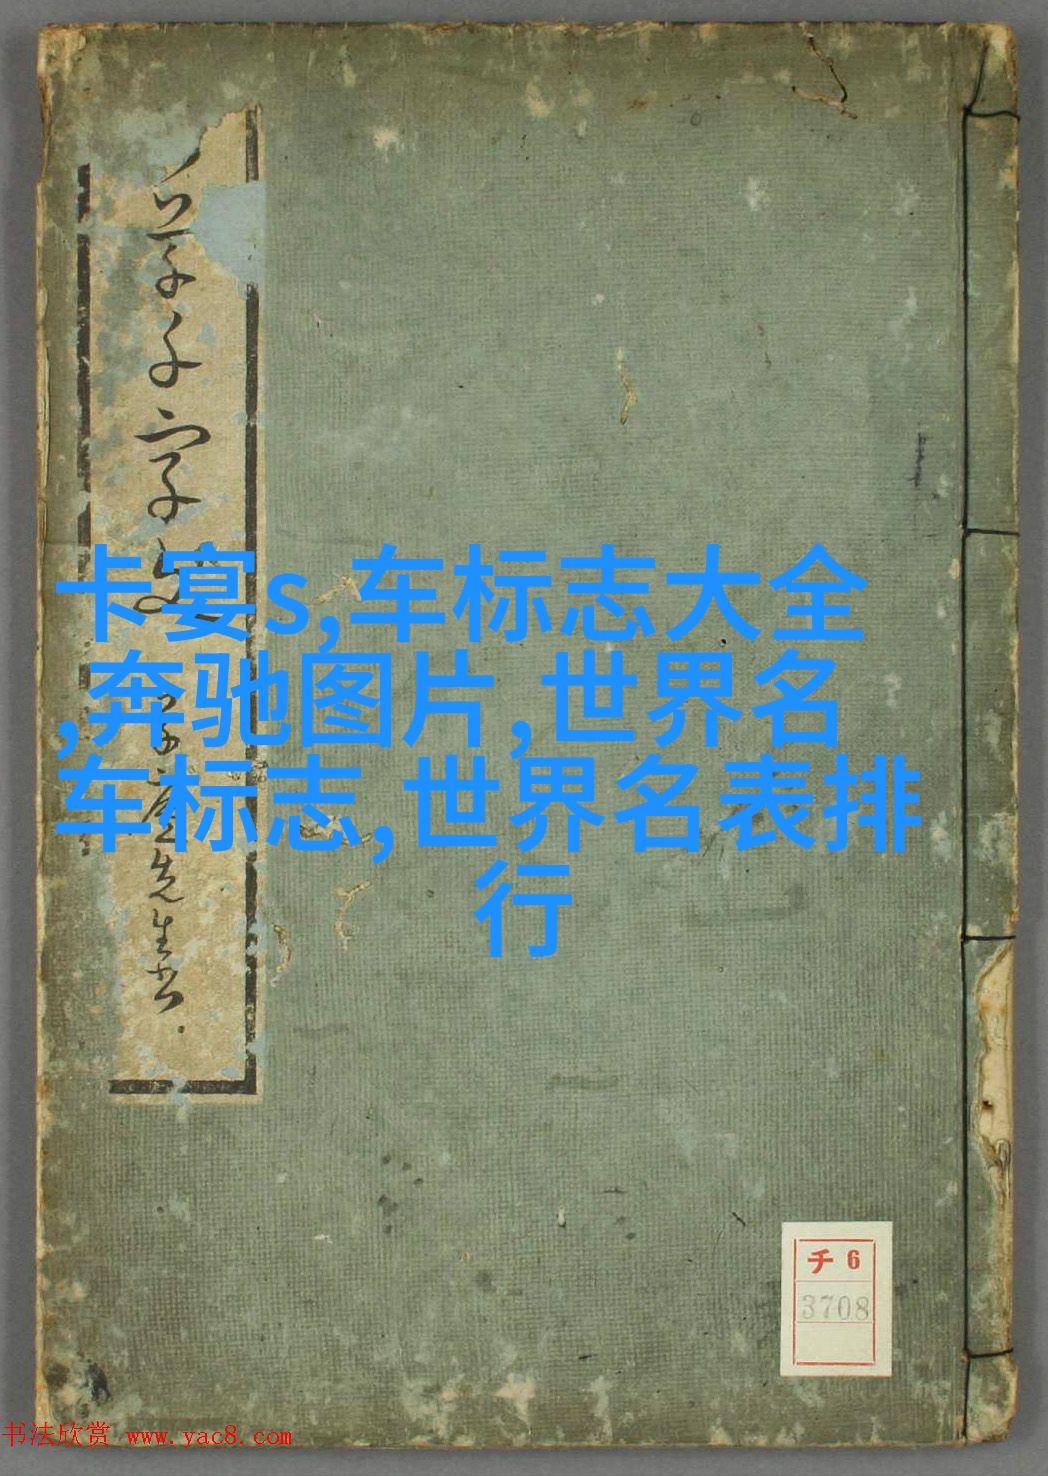 草千字
先生書
卡宴s,车标志大全
,奔驰图片,世界名
车标志,世界名表排
行
チ 6
3708
书法欣赏 www.yac8.com